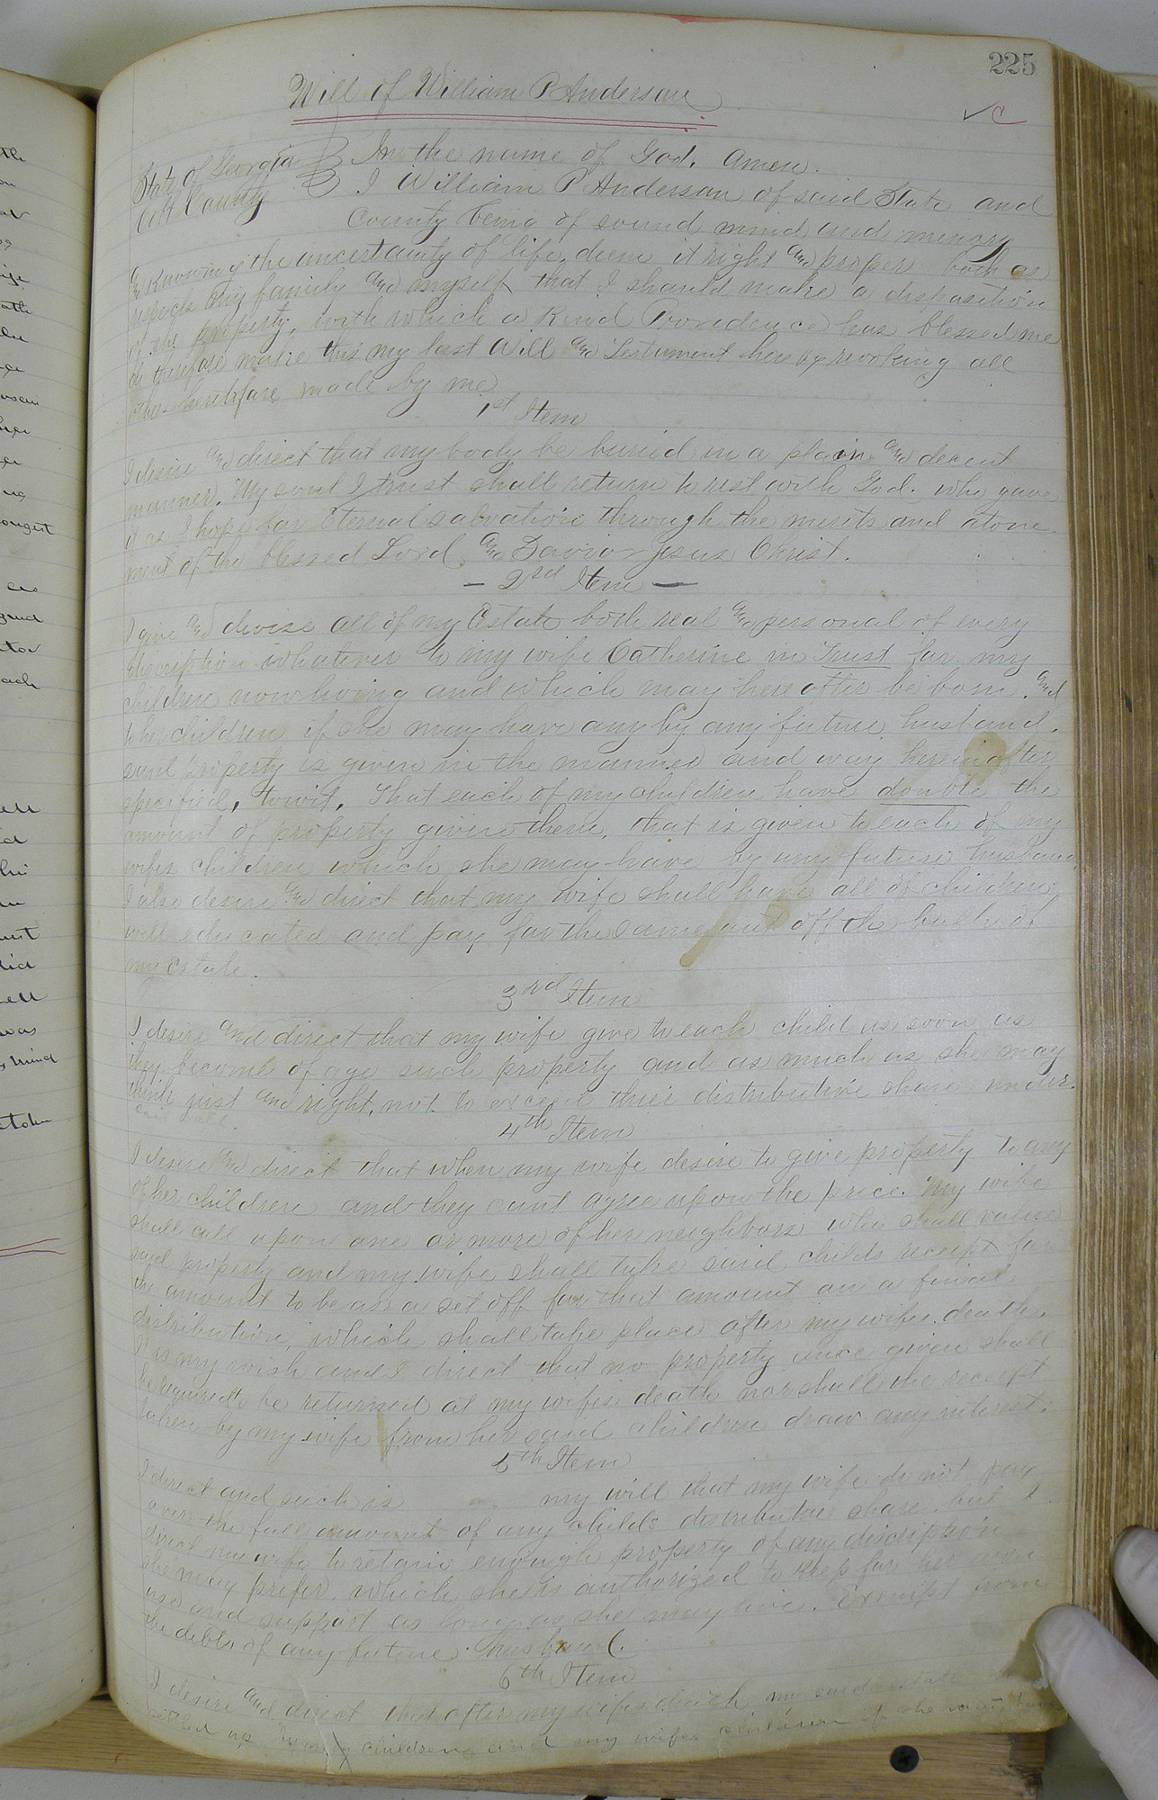 225
Will of William P Anderson
C
State of Georgia In the name of God. Amen.
County I William P Anderson of said State and
County being of sound mind and memory
& knowing the uncertainty of life, deem it right and proper both as
respects my family and myself that I should make a disposition
of the property, with which a Kind Providence has blessed me
do therefore make this my last Will and Testament hereby revoking all
heretofore made by me
1st Item
I desire and direct that my body be buried in a plain and decent
manner. My soul I trust shall return to rest with God. who gave
it as I hope for Eternal salvation through the merits and atone
ment of the blessed Lord and Savior Jesus Christ.
- 2nd Item -
I give and devise all of my Estate both real and personal of every
description whatever to my wife Catherine in Trust for my
children now living and which may hereafter be born. and
to her children if she may have any by any future husband.
said property is given in the manner and way hereinafter
specified, towit, That each of my children have double the
amount of property given them, that is given to each of my
wifes children which she may have by any future husband
I also desire and direct that my wife shall have all of children
well educated and pay for the same out off the bulk of
my Estate.
3rd Item
I desire and direct that my wife give to each child as soon as
they become of age such property and as much as she may
think just and right, not to exceed their distributive share under
4th Item
I desire and direct that when my wife desire to give property to any
of her children and they cant agree upon the price. My wife
shall call upon one or more of her neighbors who shall value
said property and my wife shall take said childs receipt for
the amount to be as a set off for that amount on a final
distribution, which shall take place after my wifes death.
It is my wish and I direct that no property once given shall
be required to be returned at my wifes death nor shall the receipt
taken by my wife from her said children draw any interest.
5th Item
I direct and such is my will that my wife do not pay
over the full amount of any childs distributive share but I
direct my wife to retain enough property of any discription
she may prefer which she is authorized to keep for her own
use and support as long as she may live. Exempt from
the debts of any future husband.
6th Item
I desire and direct that after my wifes death my said estate
settled up my children and my wifes children if she